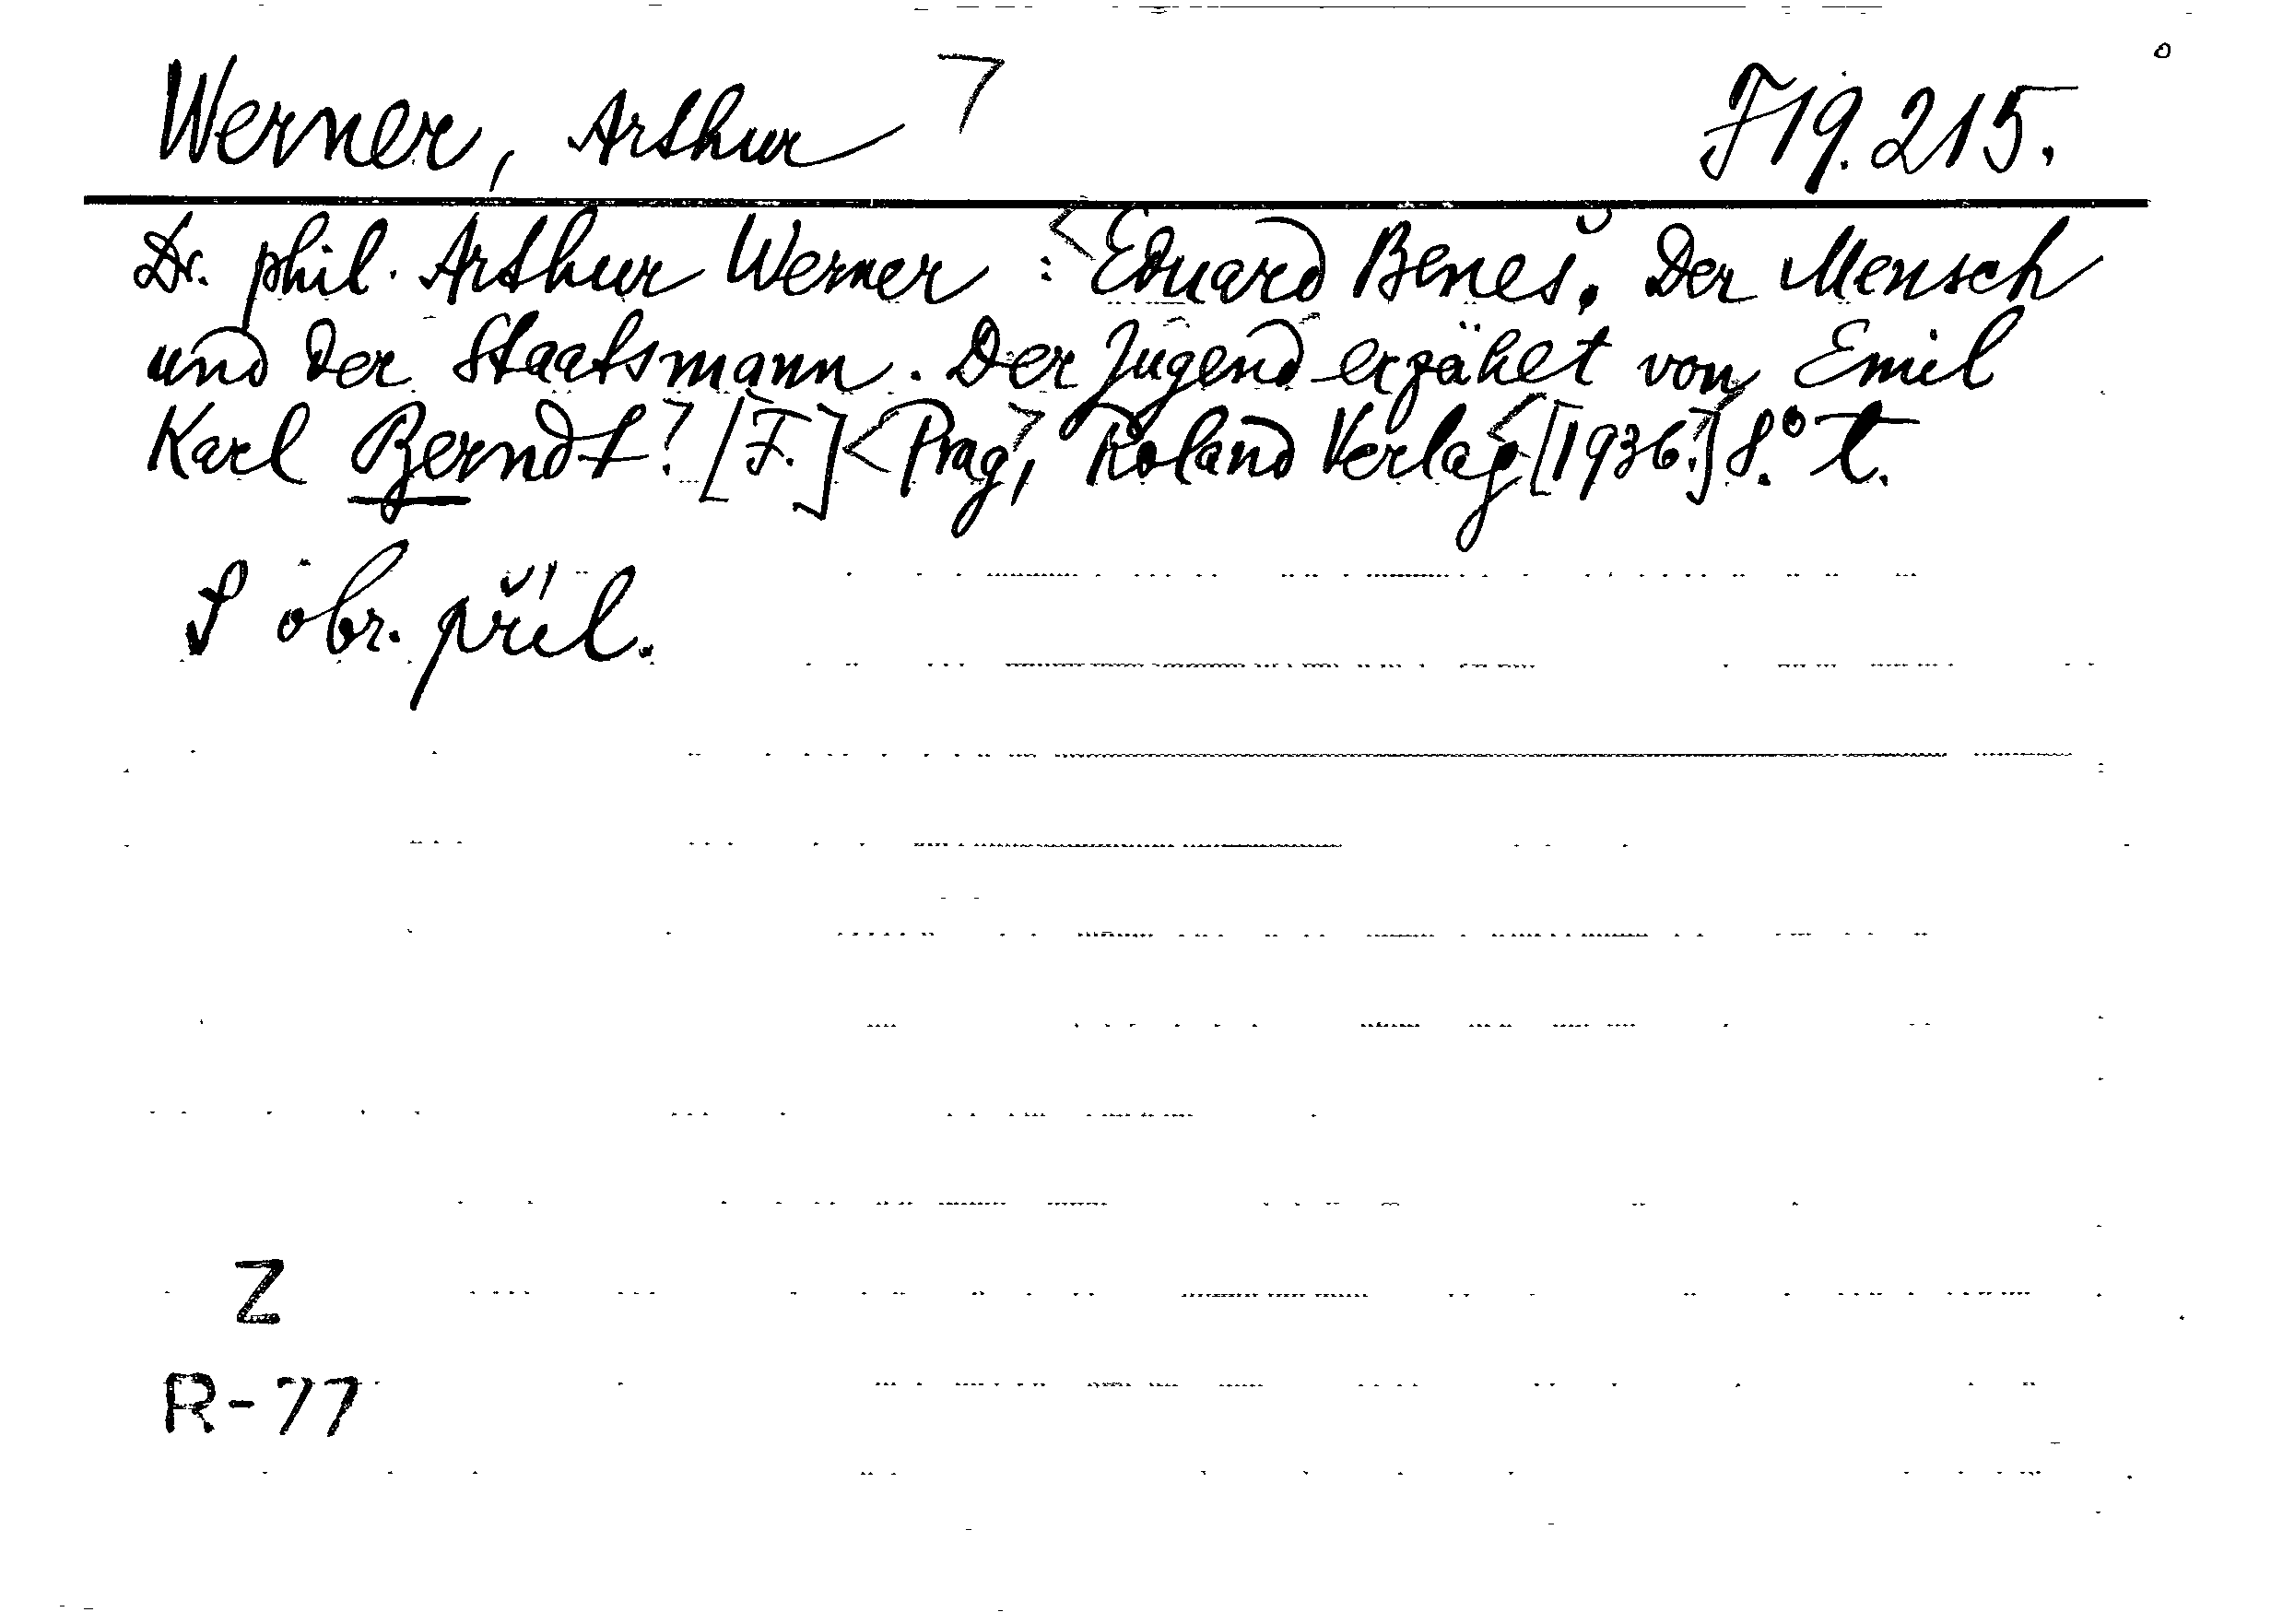 Werner, Arthur J 19.215.
Dr. phil. Arthur Werner : <Eduard Beneš. Der Mensch
und der Staatsmann. Der Jugend erzählt von Emil
Karl Berndt.> [F.] <Prag>, Roland Verlag <[1936.]> 8.° t.
S obr. příl.
Z
R-77